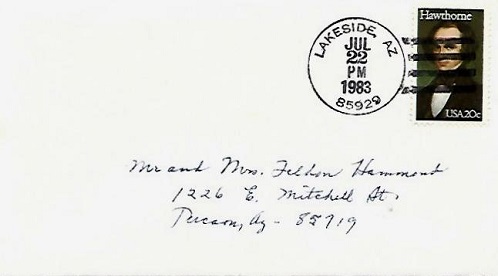 Hawthorne
USA 20c
LAKESIDE, AZ
JUL
22
PM
1983
85929
Mr and Mrs. Feldon Hammond
1226 E. Mitchell St.
Tucson, Az - 85719